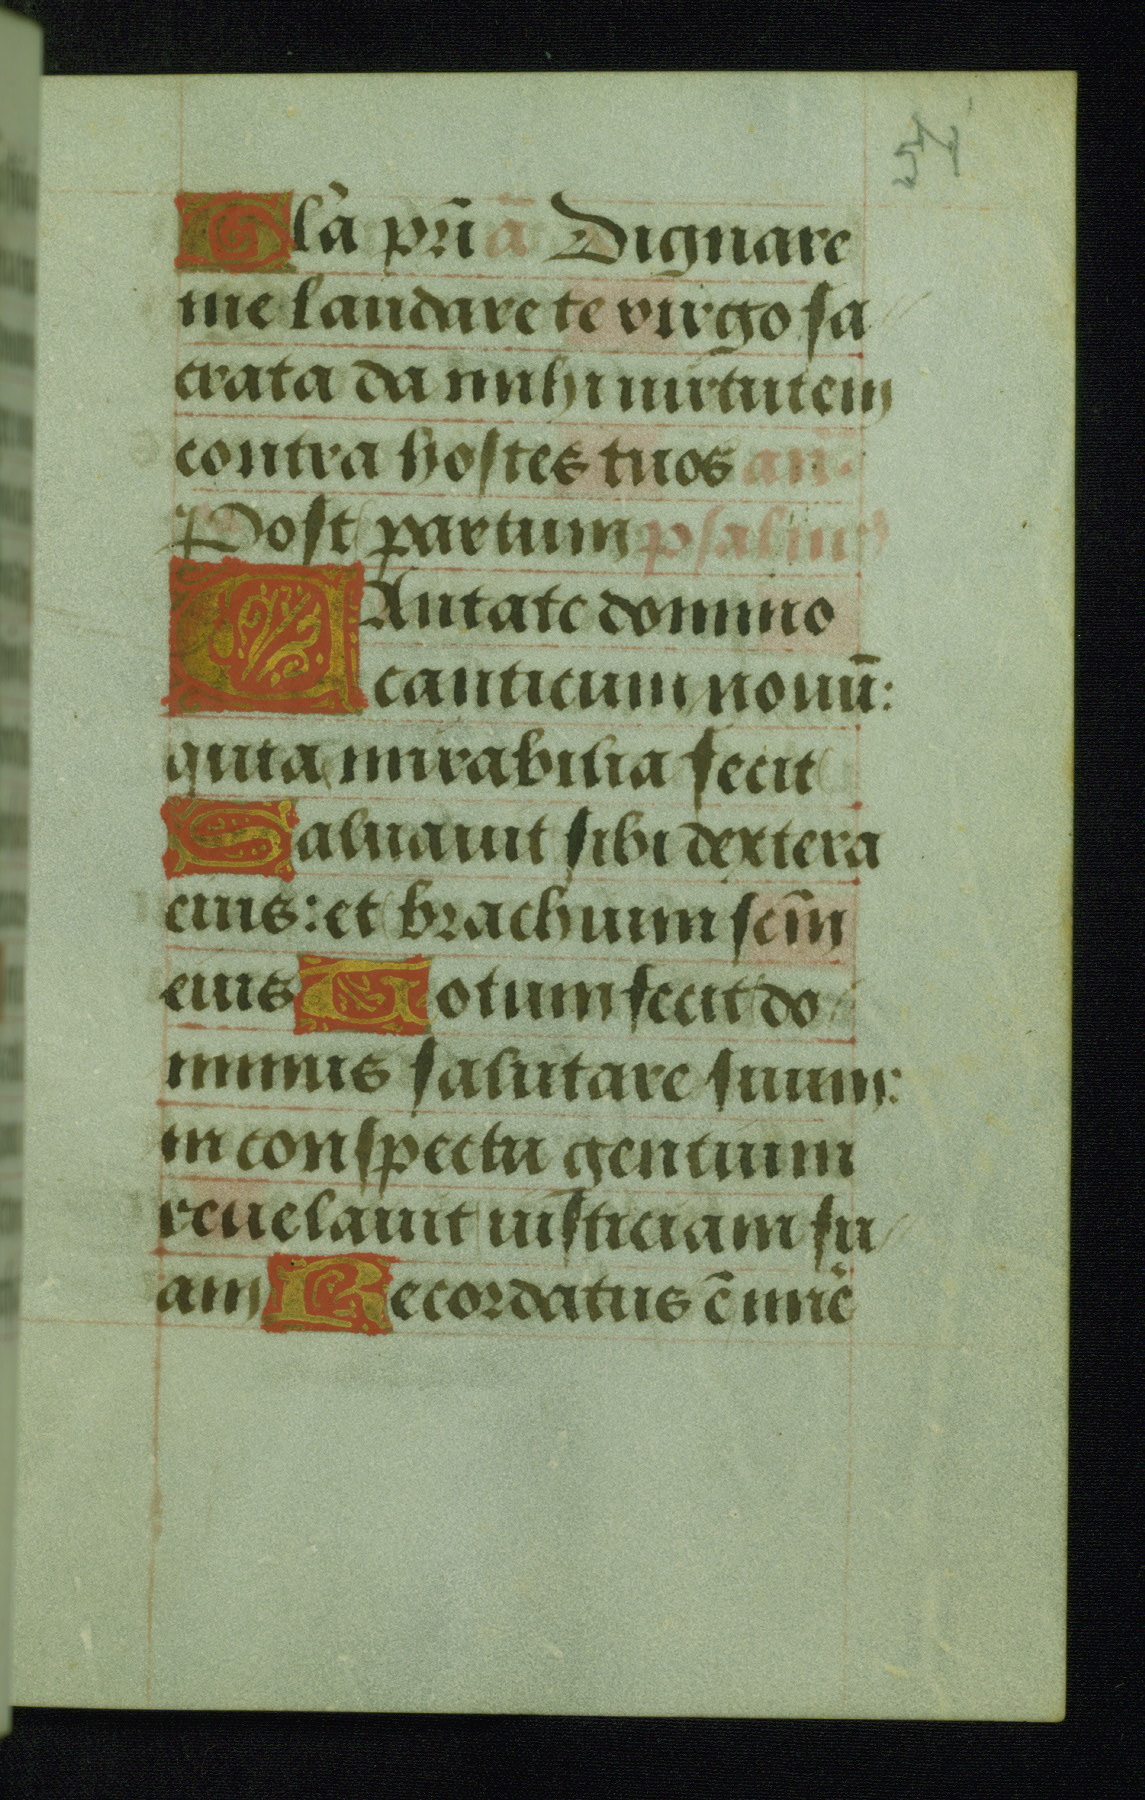 Gl'a pri a Dignare
me laudare te virgo sa
crata da mihi uirtutem
contra hostes tuos an.
Post partum psalmus
CAntate domino
canticum nouū:
quia mirabilia fecit
Saluauit sibi dextera
eius: et brachium scm̄
eius Notum fecit do
minus salutare suum:
in conspectu gentium
reuelauit iusticiam su
am Recordatus ē mīe